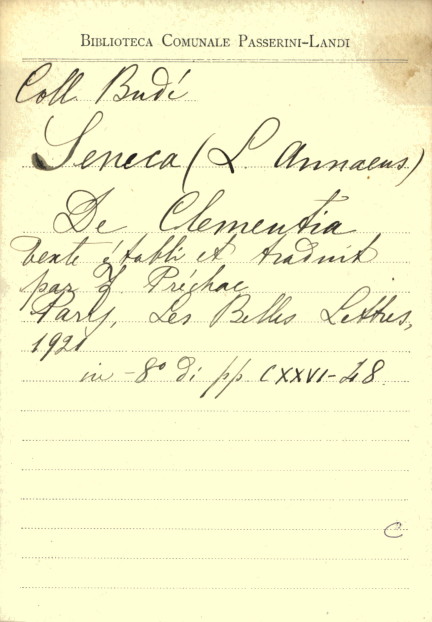 BIBLIOTECA COMUNALE PASSERINI-LANDI
Coll. Budé
Seneca (L. Annaeus)
De Clementia
texte établi et traduit
par F. Préchac
Paris, Les Belles Lettres,
1921
in -8° di pp CXXVI-48
C